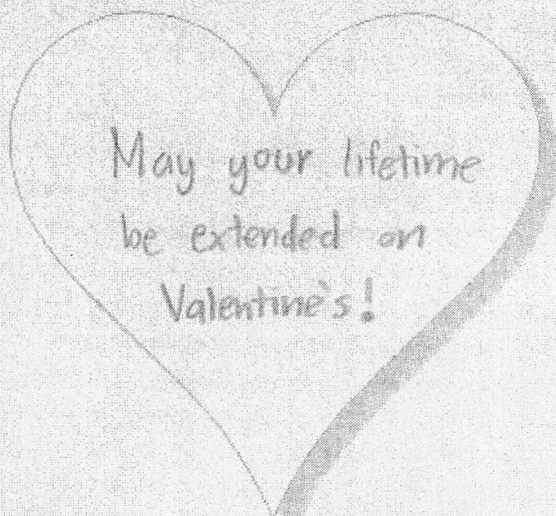 May your lifetime
be extended on
Valentine's!